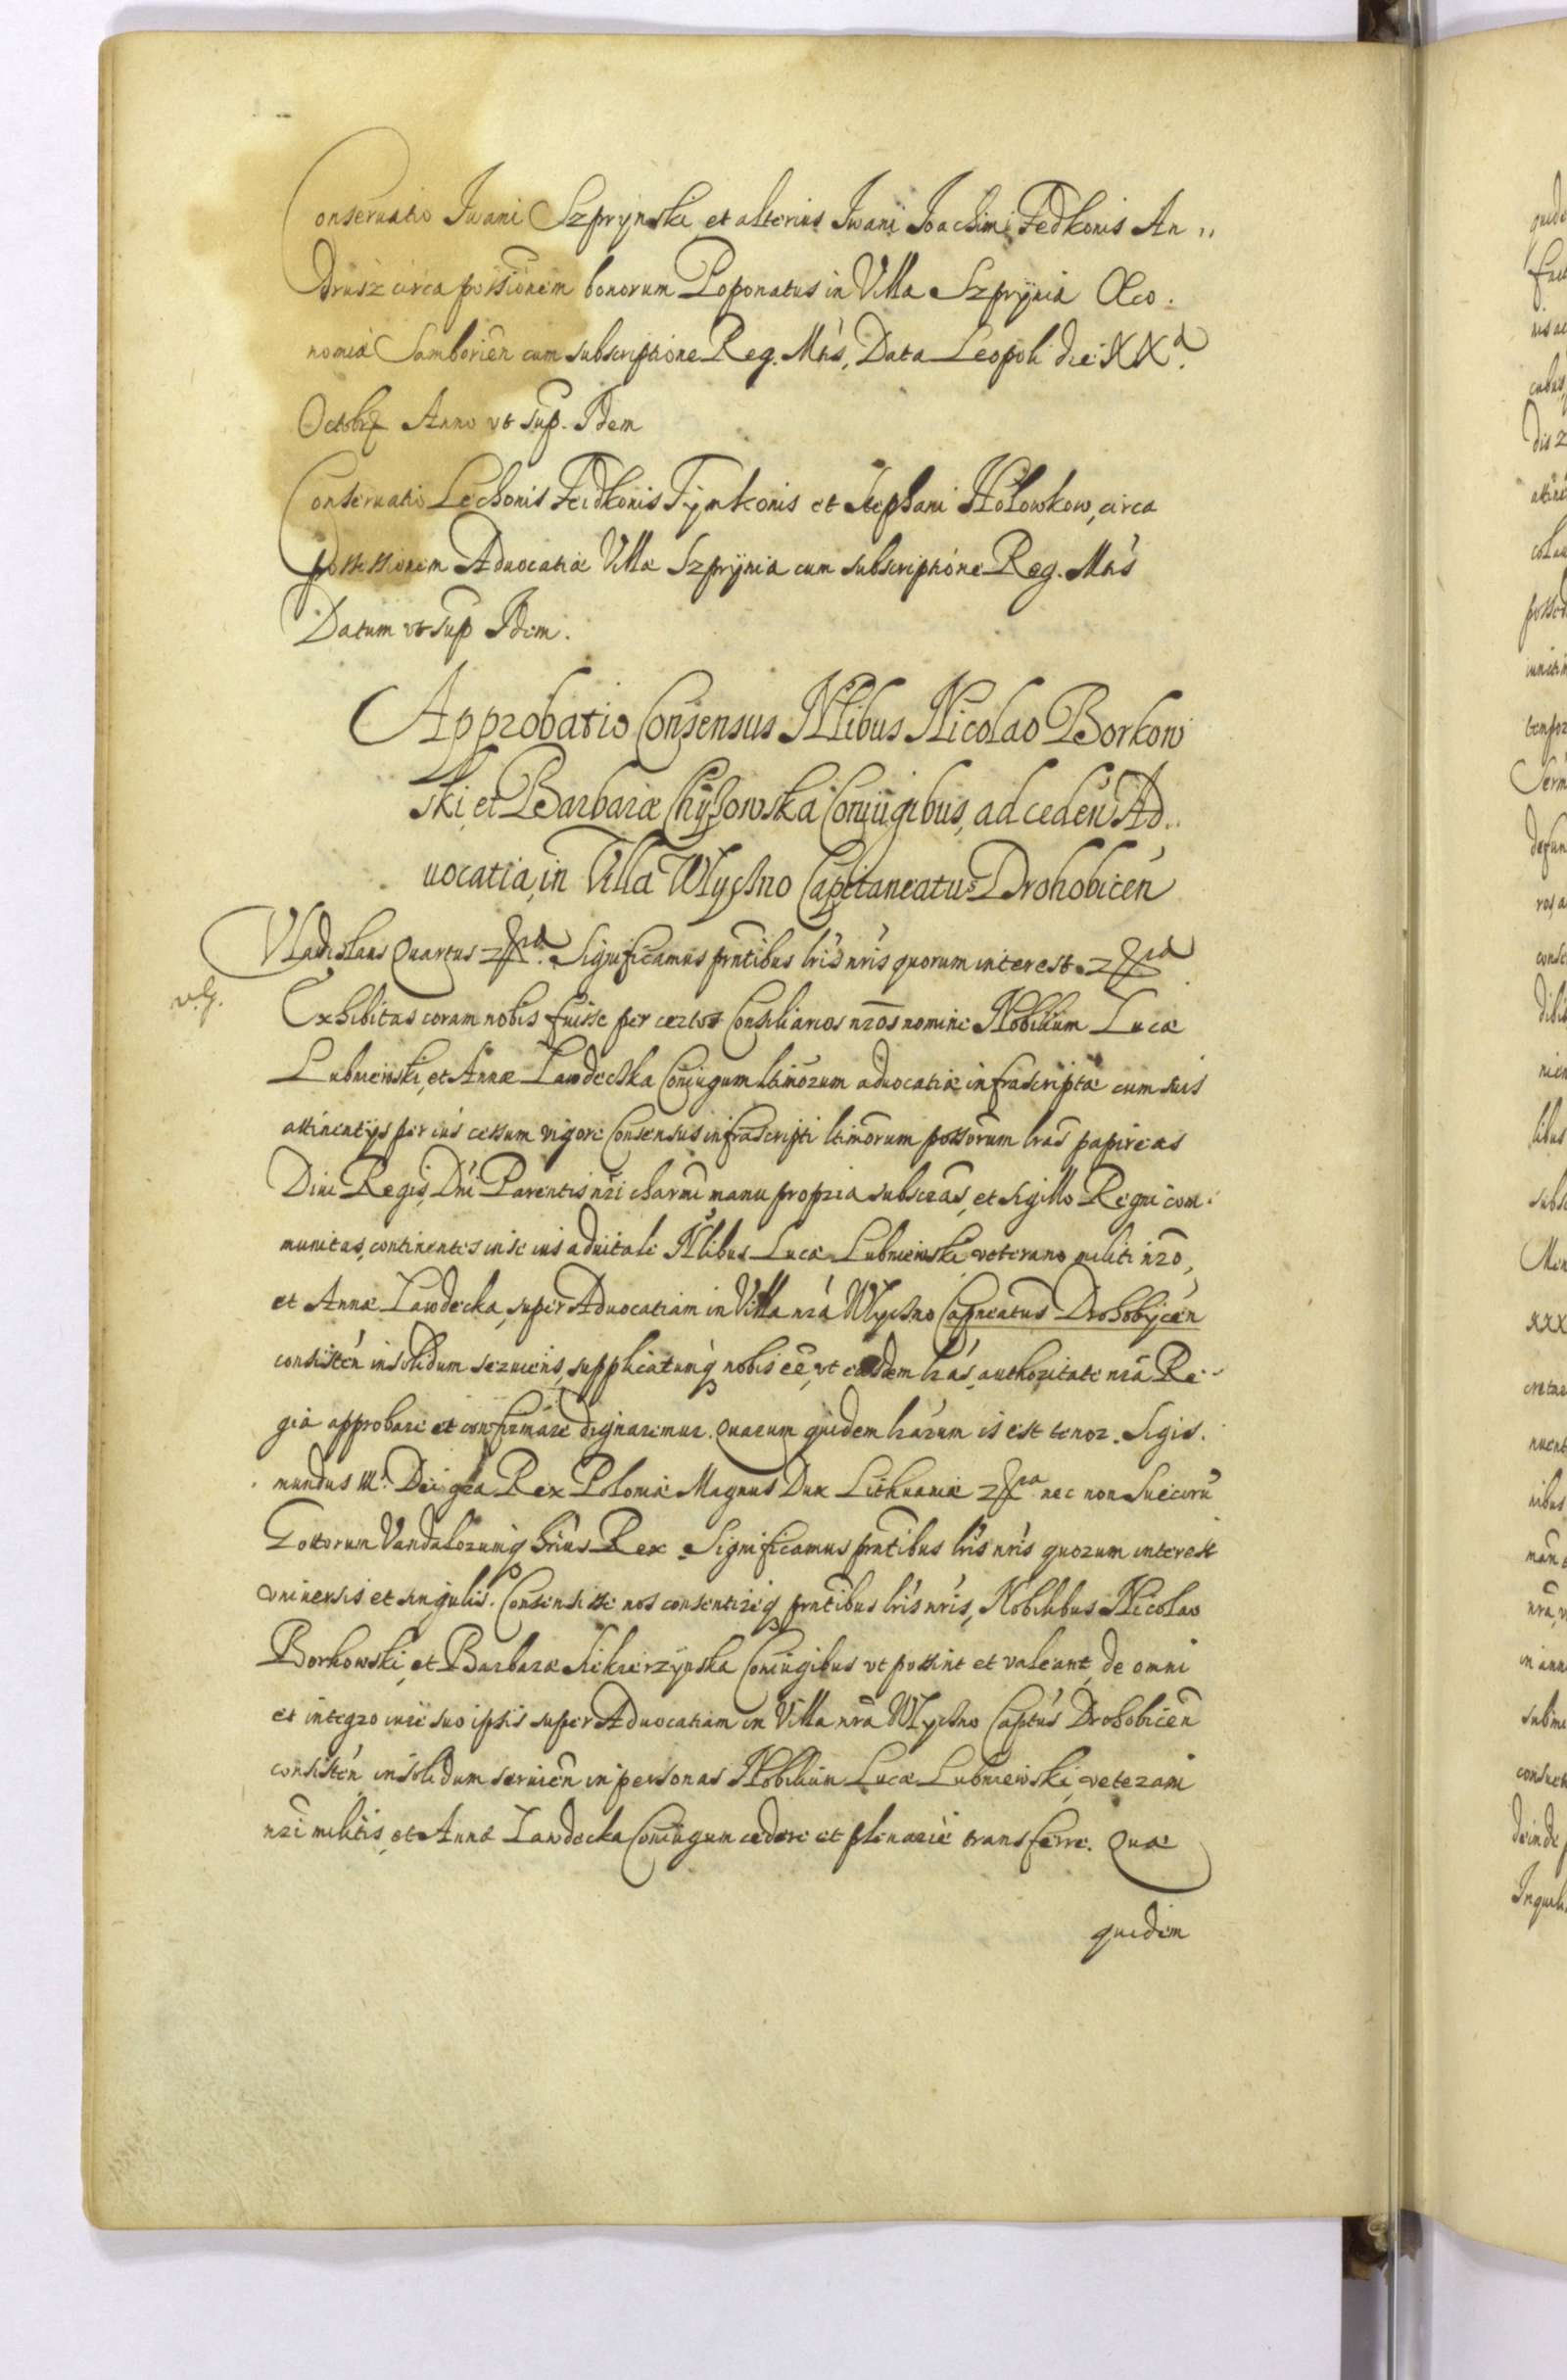 Conseruatio Iwani Szprynski et alterius Iwani Ioachimi Fedkonis An„
drusz circa possionem bonorum Poponatus in Villa Szprynia Œco.
nomia Samborien cum subscriptione Reg. Mtis, Data Leopoli die XXa.
Octobr Anno vt sup. Idem
Conseruatio Lechonis Feidkonis Tymkonis et Stephani Hołowkow, circa
possessionem Aduocatiæ Villæ Szprynia cum subscriptione Reg. Mtis
Datum vt sup Idem.
Approbatio Consensus Nlibus Nicolao Borkow
ski, et Barbaræ Coniugibus, ad ceden Ad..
uocatia, in Villa Wlychno Capitaneatus Drohobicen
Vladislaus Quartus &ra. Significamus prntibus lris nris quorum interest &ra
Exhibitas coram nobis fuisse per certos Consiliarios nros nomine Nobilium Lucæ
Lubniewski, et Annæ Coniugum ltimorum aduocatiæ infrascriptæ cum suis
attinentijs per ius cessum vigore Consensus infrascripti ltimorum possorum lras papireas
Diui Regis, Dni Parentis nri charmi manu propria subscras, et sigillo Regni com.
munitas, continentes in se ius aduitale Nlibus Lucæ Lubniewski veterano militi nro,
et Annæ super Aduocatiam in Villa nra Wlychno Capneatus Drohobycen
consisten insolidum seruiens, supplicatumq nobis ee, vt easdem lras, authoritate nra Re.
gia approbare et confirmare dignaremur. Quarum quidem lrarum is est tenor. Sigis.
mundus IIIs. Dei gra Rex Poloniæ Magnus Dux Lithuaniæ &ra nec non Suecoru
Gottorum Vandalorumq hrius Rex. Significamus prntibus lris nris quorum interest
vniuersis et singulis. Consensisse nos consentireq prntibus lris nris, Nobilibus Nicolao
Borkowski, et Barbaræ Siekierzynska Coniugibus vt possint et valeant, de omni
et integro iure suo ipsis super Aduocatiam in Villa nra Wlychno Captus Drohobicen
consisten insolidum seruien in personas Nobilium Lucæ Lubniewski, veterani
nri militis, et Annæ Coniugum cedere et plenarie transferre. Quæ
quidem